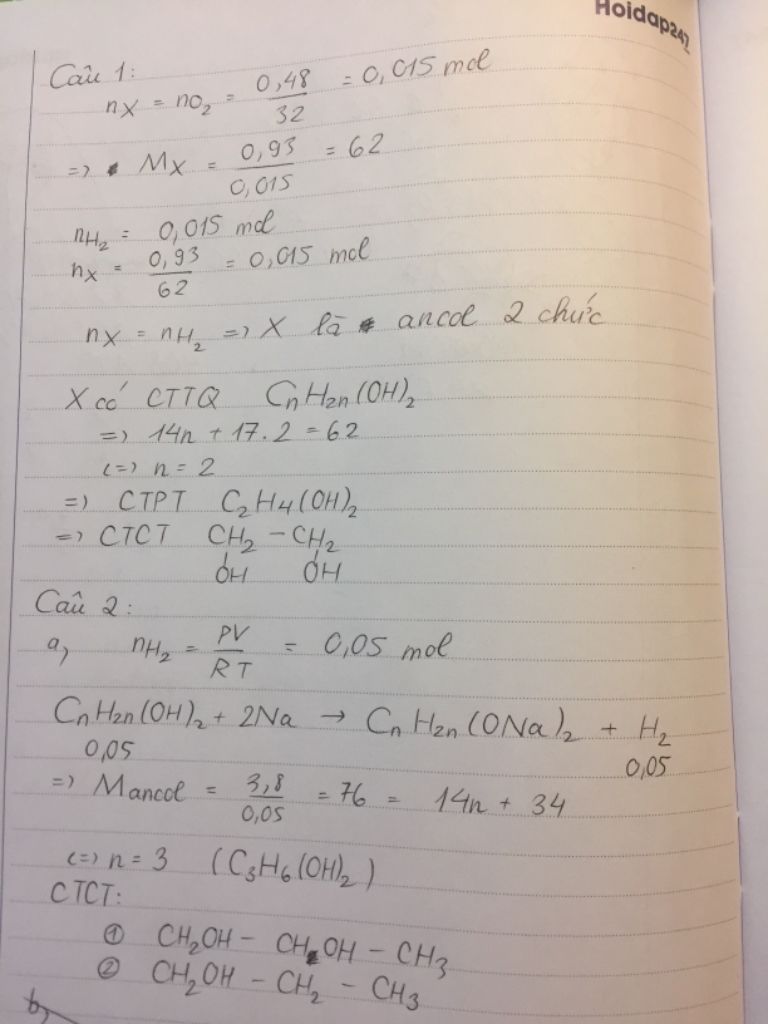 Hoidap247
Câu 1:
nX = nO2 = 0,48/32 = 0,015 mol
=> MX = 0,93/0,015 = 62
nH2 = 0,015 mol
nX = 0,93/62 = 0,015 mol
nX = nH2 => X là ancol 2 chức
X có CTTQ CnH2n(OH)2
=> 14n + 17.2 = 62
<=> n = 2
=> CTPT C2H4(OH)2
=> CTCT CH2 - CH2
OH OH
Câu 2:
a, nH2 = PV/RT = 0,05 mol
CnH2n(OH)2 + 2Na → CnH2n(ONa)2 + H2
0,05 0,05
=> Mancol = 3,8/0,05 = 76 = 14n + 34
<=> n = 3 (C3H6(OH)2)
CTCT:
① CH2OH - CHOH - CH3
② CH2OH - CH2 - CH3
b,